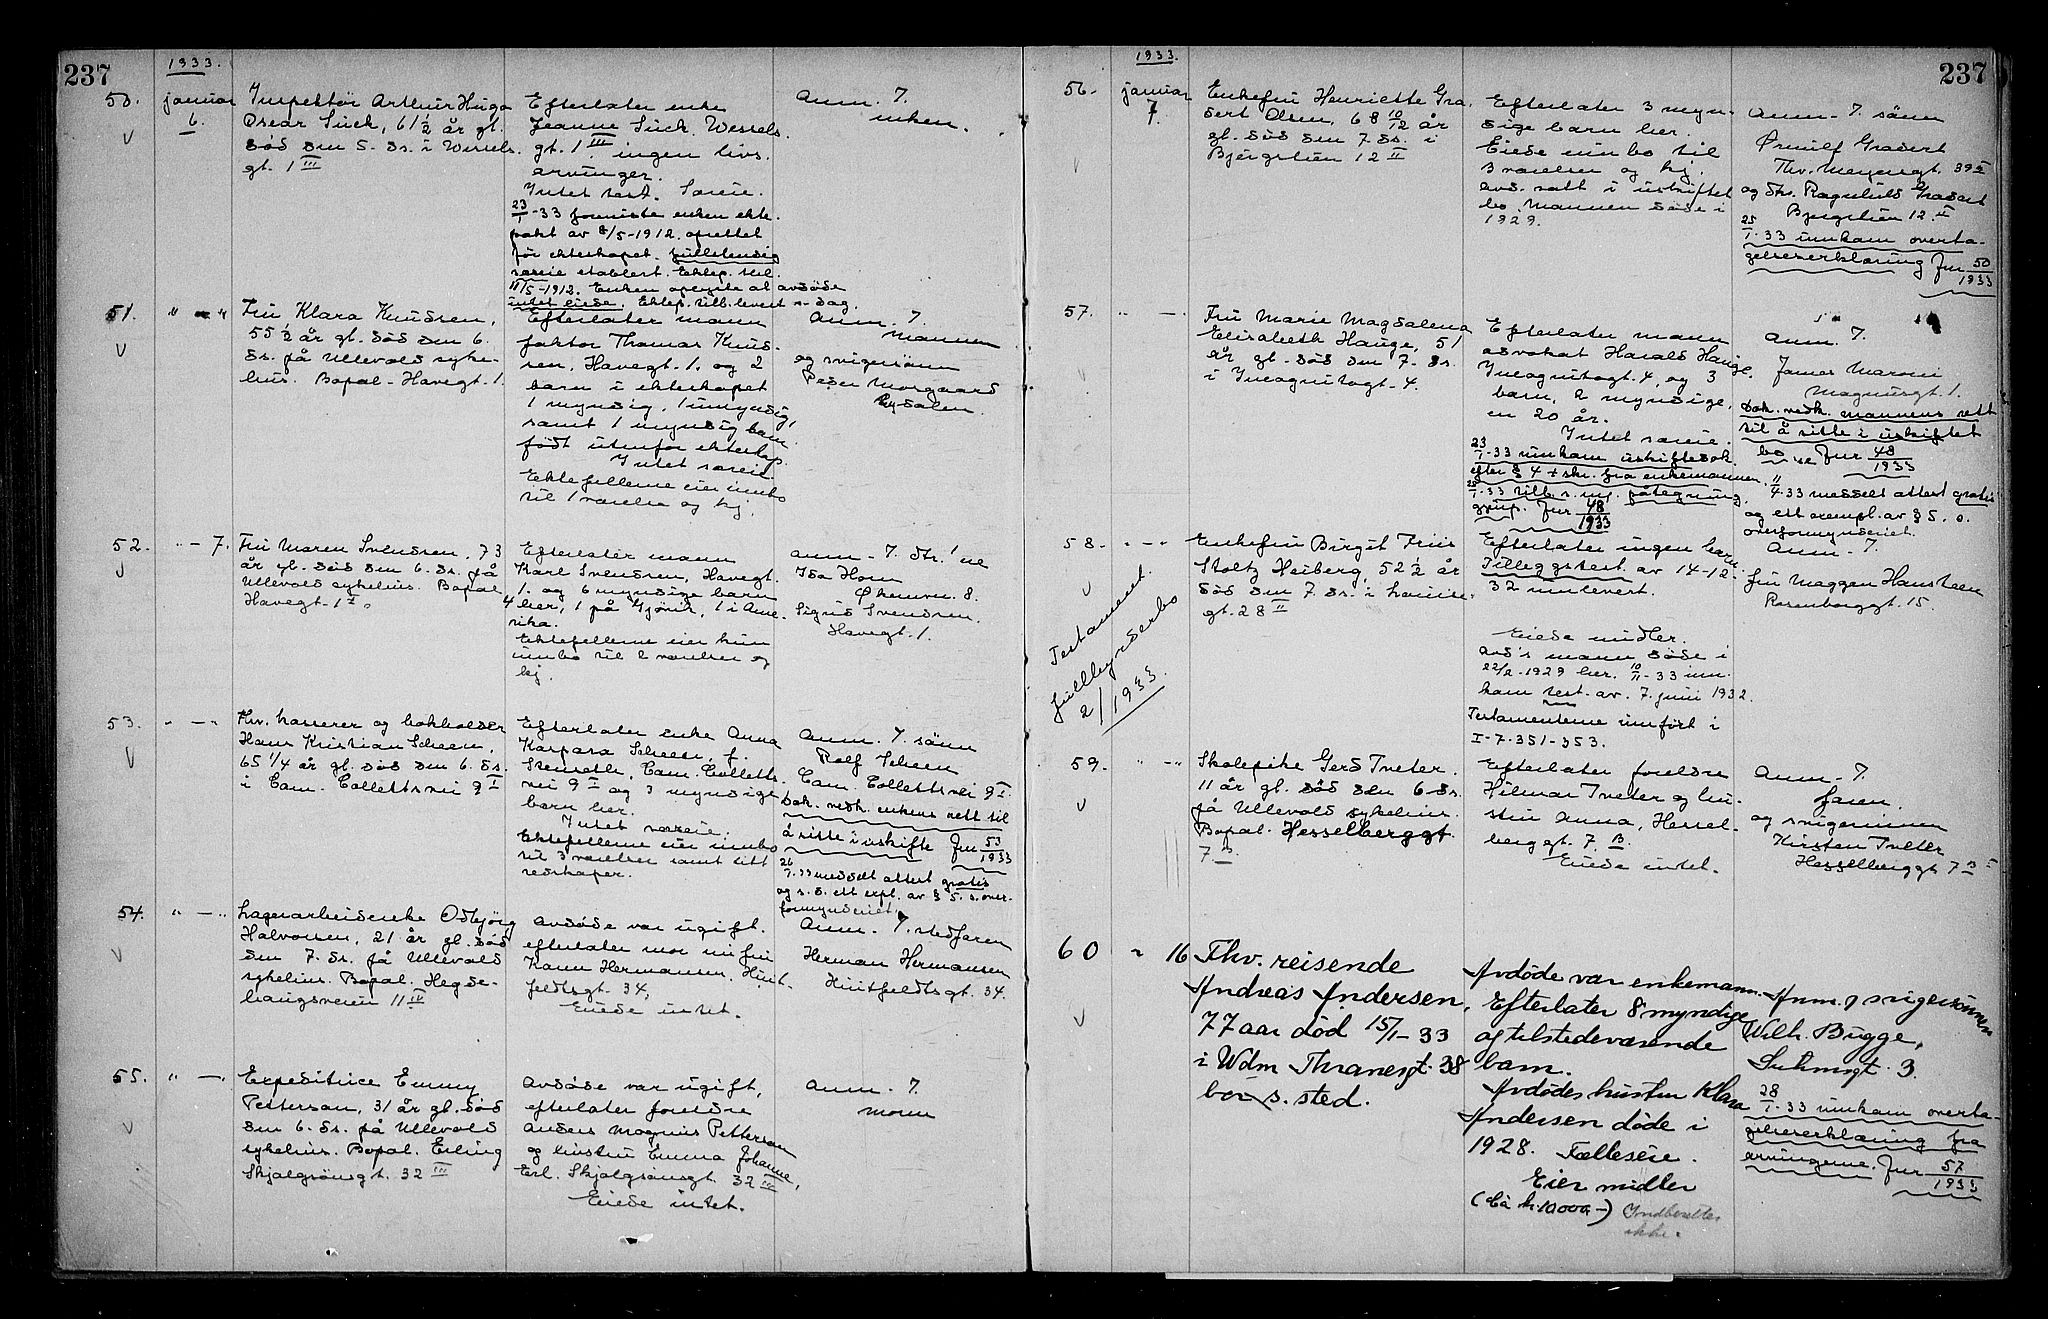 237
1933.
50.
januar
6.
Inspektør Arthur Hugo
Oscar Lück, 61 1/2 år gl.
død den 5. ds. i Wessels
gt. 1 III
Efterlater enke
Jeanne Lück. Wessels.
gt. 1 III. ingen livs.
arvinger.
Intet test. Særeie.
23/1-33 foreviste enken ekte.
pakt av 8/5-1912. oprettet
før ekteskapet. fullstendig
særeie etablert. Ektep. tinl.
11/5-1912. Enken opgyste at avdøde
intet eiede. Ektep. tilb. levert s. dag.
Anm. 7.
enken.
51.
" - "
Fru Klara Knudsen,
55 1/2 år gl. død den 6.
ds. på Ullevold syke-
hus. Bopal Havegt. 1.
Efterlater mann
faktor Thomas Knud-
sen, Havegt. 1. og 2
barn i ekteskapet
1 myndig, 1 umyndig,
samt 1 myndig barn
født utenfor ekteskap.
Intet særeie.
Ektefellerne eier innbo
til 1 værelse og kj.
Anm. 7.
mannen
og svigersønn
Peder Morgaard
Rydalen.
52.
" - 7.
Fru Maren Svendsen, 73
år gl. død den 6. ds. på
Ullevold sykehus. Bopal
Havegt. 1
Efterlater mann
Karl Svendsen, Havegt.
1. og 6 myndige barn
4 her, 1 på Gjøvik, 1 i Ame-
rika.
Ektefellerne eier kun
innbo til 2 værelser og
kj.
Anm. 7. dtr.
Ida Horn
Økernvn. 8.
Sigrid Svendsen.
Havegt. 1.
53.
" - "
Fhv. kasserer og bokholder
Hans Kristian Scheen,
65 1/4 år gl. død den 6. ds.
i Cam. Collettsvei 9 I
Efterlater enke Anna
Kaspara Scheen, f.
Stenseth, Cam. Colletts.
vei 9 I og 3 myndige
barn her.
Intet særeie.
Ektefellerne eier innbo
til 3 værelser samt litt
redskaper.
Anm. 7. sønn
Rolf Scheen
Cam. Collettsvei 9 I.
Dok. vedk. enkens rett til
å sitte i uskifte Jnr 53/1933
26/1.33 meddelt attest gratis
og s. d. ett expl. av § 5. s. over-
formynderiet.
54.
" - "
Lagerarbeiderske Odbjörg
Halvorsen, 21 år gl. død
den 7. ds. på Ullevold
sykehus. Bopal. Hegde-
haugsveien 11 IV
Avdøde var ugift.
efterlater mor nu fru
Karen Hermansen, Huit-
feldtsgt. 34,
Eiede intet.
Anm. 7. stedfaren
Herman Hermansen
Huitfeldtsgt. 34.
55.
" - "
Expeditrice Emmy
Pettersen, 31 år gl. død
den 6. ds. på Ullevold
sykehus. Bopal. Erling
Skjalgsönsgt. 32 III
Avdøde var ugift,
efterlater foreldre
Anders Magnus Pettersen
og hustru Emma Johanne,
Erl. Skjalgsønsgt. 32 III
Eiede intet.
Anm. 7.
moren
237
1933.
56.
januar
7.
Enkefru Henriette Gra-
sert Olsen, 68 10/12 år
gl. død den 7. ds. i
Bjergstien 12 II
Efterlater 3 myn-
dige barn her.
Eiede innbo til
3 værelser og kj.
avd. satt i uskiftet
bo. Mannen døde i
1929.
Anm. 7. sønn
Ørnulf Grasert
Thv. Meyersgt. 39 II
og dtr. Ragnhild Grasert
Bjergstien 12. II
25/1-33 innkom overta-
gelseserklæring Jnr 50/1933
57.
" - "
Fru Marie Magdalena
Elisabeth Hauge, 51
år gl. død den 7. ds.
i Incognitogt. 4.
Efterlater mann
advokat Harald Hauge,
Incognitogt. 4, og 3
barn, 2 myndige,
en 20 år.
Intet særeie.
23/1-33 innkom uskiftedok.
efter § 4 + skr. fra enkemannen.
gjenp. Jnr 48/1933
Anm. 7.
James Maroni
Magnusgt. 1.
Dok. vedk. mannens rett
til å sitte i uskiftet
bo se Jnr 48/1933
11/4.33 meddelt attest gratis
og ett exempl. av § 5. s.
overformynderiet.
58.
" - "
Testament.
fullbyrderbo
2/1933.
Enkefru Birgit Friis
Stoltz Heiberg, 52 1/2 år
død den 7. ds. i Louise.
gt. 28 II
Efterlater ingen barn.
Tilleggstest. av 14-12-
32 innlevert.
Eiede midler.
avd's mann døde i
22/2-1929 her. 10/11-33 inn.
kom test. av. 7. juni 1932.
Testamenterne innført i
I-7-351-353.
Anm. 7.
fru Maggen Hansteen
Rosenborggt. 15.
59.
" - "
Skolepike Gerd Tveter.
11 år gl. død den 6. ds.
på Ullevold sykehus.
Bopal. Hesselberggt.
7 B.
Efterlater foreldre
Hilmar Tveter og hu-
stru Anna, Hessel-
berggt. 7 B.
Eiede intet.
Anm. 7.
faren.
og svigerinnen
Kirsten Tveter
Hesselberggt 7 B
60
" 16
Fhv. reisende
Andreas Andersen,
77 aar død 15/1-33
i Wdm Thranesgt. 38
bor s. sted.
Avdøde var enkemann.
Efterlater 8 myndige
og tilstedeværende
barn.
Avdødes hustru Klara
Andersen døde i
1928. Fælleseie.
Eier midler
(Ca kr. 10000.-) Indberettes
ikke.
Anm. 7 svigersönnen
Wilh. Bugge,
Suhmsgt. 3.
28/1-33 innkom overta-
gelseserklæring fra
arvingerne. Jnr 57/1933